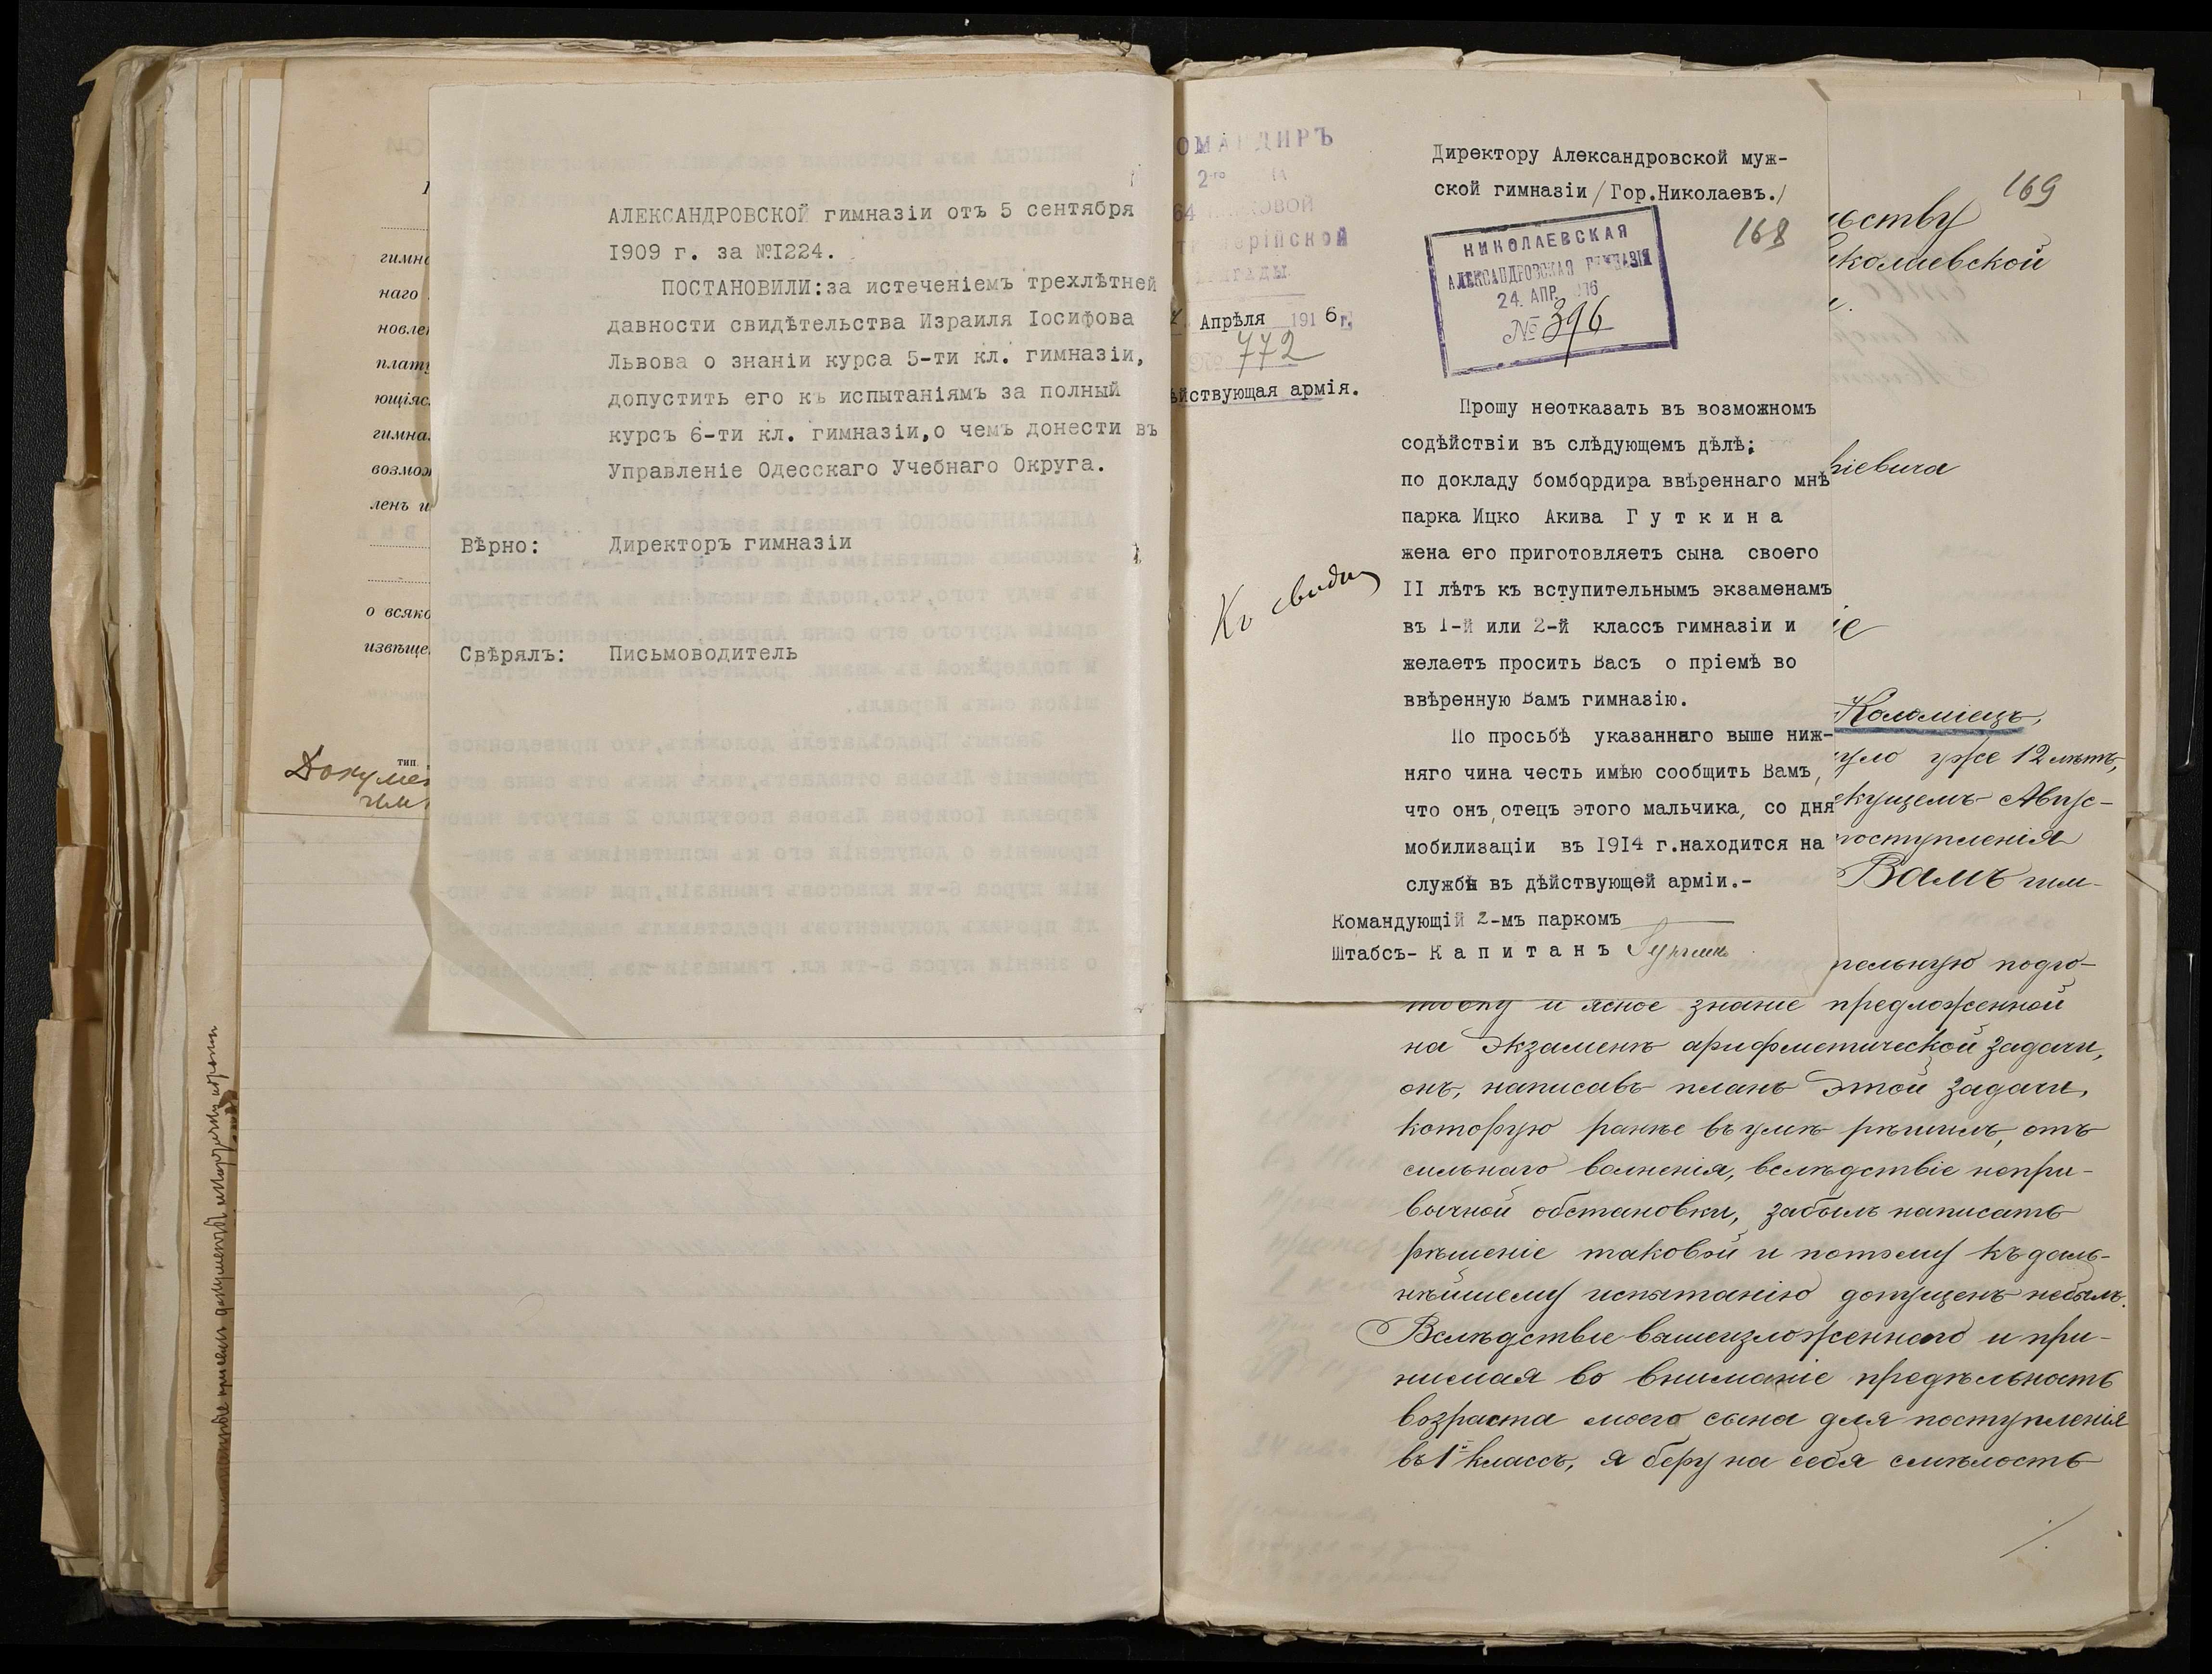 гимна
наго
новлен
плату
ющіяс
гимна
возмож
ленъ и
о всяко
извѣще
тип.
Докумен
АЛЕКСАНДРОВСКОЙ гимназіи отъ 5 сентября
1909 г. за №I224.
ПОСТАНОВИЛИ:за истеченіемъ трехлѣтней
давности свидѣтельства Израиля Іосифова
Львова о знаніи курса 5-ти кл. гимназіи,
допустить его къ испытаніямъ за полный
курсъ 6-ти кл. гимназіи,о чемъ донести въ
Управленіе Одесскаго Учебнаго Округа.
Вѣрно: Директоръ гимназіи
Свѣрялъ: Письмоводитель
ОМАНДИРЪ
2-го
64 ПАРКОВОЙ
БРИГАДЫ.
Апрѣля 1916 г.
№ 772
ѣйствующая армія.
Къ свѣдѣн
Директору Александровской муж-
ской гимназіи /Гор.Николаевъ./
168
НИКОЛАЕВСКАЯ
АЛЕКСАНДРОВСКАЯ ГИМНАЗІЯ
24. АПР. 916
№ 396
Прошу неотказать въ возможномъ
содѣйствіи въ слѣдующемъ дѣлѣ;
по докладу бомбордира ввѣреннаго мнѣ
парка Ицко Акива Г у т к и н а
жена его приготовляетъ сына своего
II лѣтъ къ вступительнымъ экзаменамъ
въ I-й или 2-й классъ гимназіи и
желаетъ просить Васъ о пріемѣ во
ввѣренную Вамъ гимназію.
По просьбѣ указаннаго выше ниж-
няго чина честь имѣю сообщить Вамъ,
что онъ,отецъ этого мальчика, со дня
мобилизаціи въ I9I4 г.находится на
службѣ въ дѣйствующей арміи.-
Командующій 2-мъ паркомъ
Штабсъ- К а п и т а н ъ
169
льству
иколаевской
ніевича
іе
Коломіецъ,
нуло уже 12 лѣтъ,
екущемъ Авгус-
поступленія
Вамъ гим-
тельную подго-
товку и ясное знаніе предложенной
на экзаменѣ арифметической задачи,
онъ, написавъ планъ этой задачи,
которую ранѣе въ умѣ рѣшилъ, отъ
сильнаго волненія, вслѣдствіе непри-
вычной обстановки, забылъ написать
рѣшеніе таковой и потому къ даль-
нѣйшему испытанію допущенъ небылъ.
Вслѣдствіе вышеизложеннаго и при-
нимая во вниманіе предѣльность
возраста моего сына для поступленія
въ 1й классъ, я беру на себя смѣлость